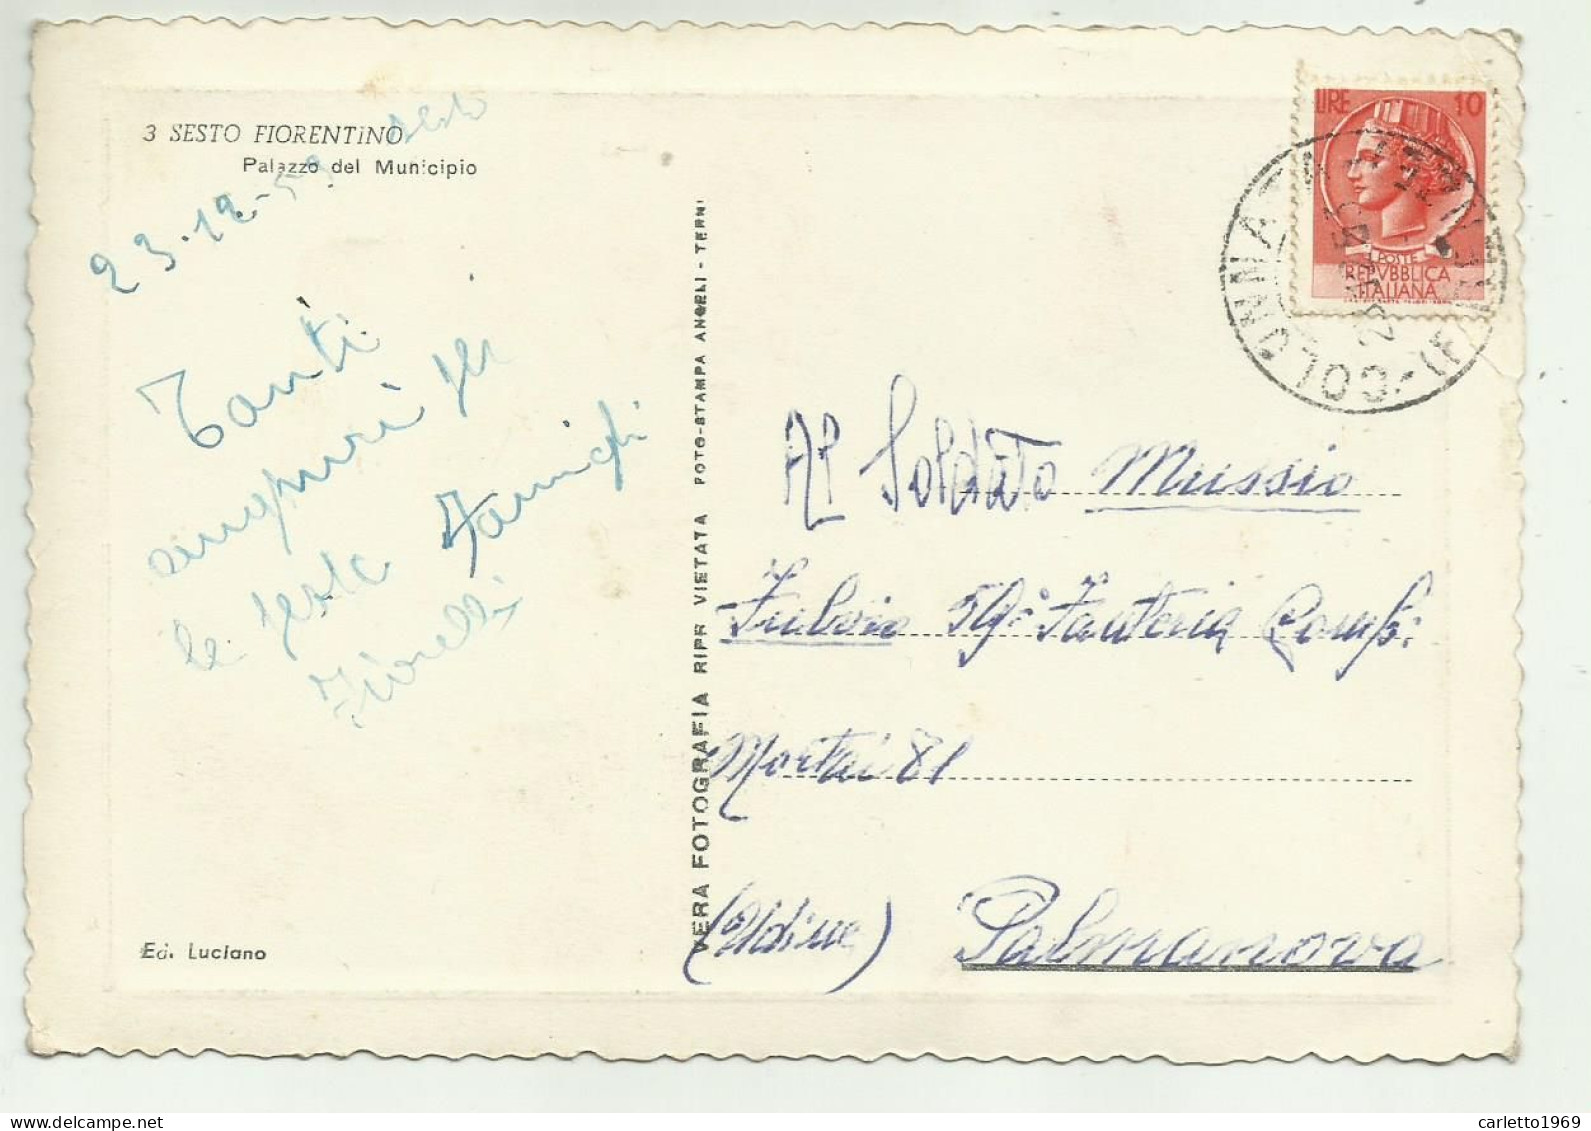 3 SESTO FIORENTINO
Palazzo del Municipio
23-12-59 Sesto
Tanti
auguri per
le feste Famigli
Fiorelli
Ed. Luciano
VERA FOTOGRAFIA RIPR VIETATA FOTO-STAMPA ANGELI - TERNI
LIRE 10
POSTE
REPVBBLICA
ITALIANA
COLONNATA
(FIRENZE)
Al Soldato Mussio
Fulvio 59° Fanteria Comp.
Mortai 81
(Udine) Palmanova
carletto1969